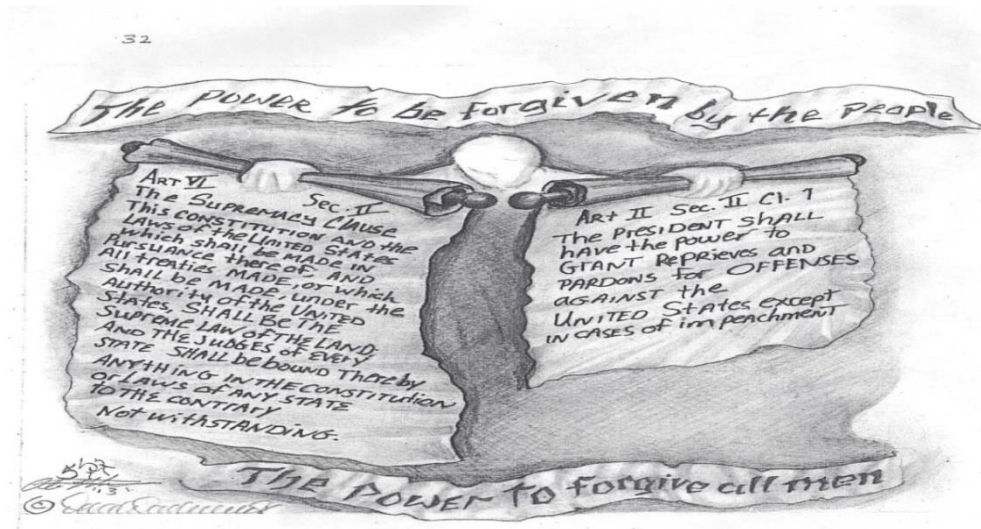 32
The POWER to be forgiven by the People
ART VI Sec. II
The Supremacy Clause
This CONSTITUTION AND the
LAWS of the UNITED STATES
which shall be MADE IN
PURSUANCE there of: AND
All treaties MADE, or which
SHALL be MADE, under the
Authority of the UNITED
STATES, SHALL BE THE
SUPREME LAW OF THE LAND;
AND THE JUDGES OF EVERY
STATE SHALL be bound Thereby
ANYTHING IN THE CONSTITUTION
or LAWS of ANY STATE
TO THE CONTIARY
Not withSTANDING.
ART II Sec. II Cl. 1
The PRESIDENT SHALL
have the power to
GIANT Reprieves and
PARDONS for OFFENSES
AGAINST the
UNITED States except
IN CASES of impeachment
The POWER to forgive all men
©